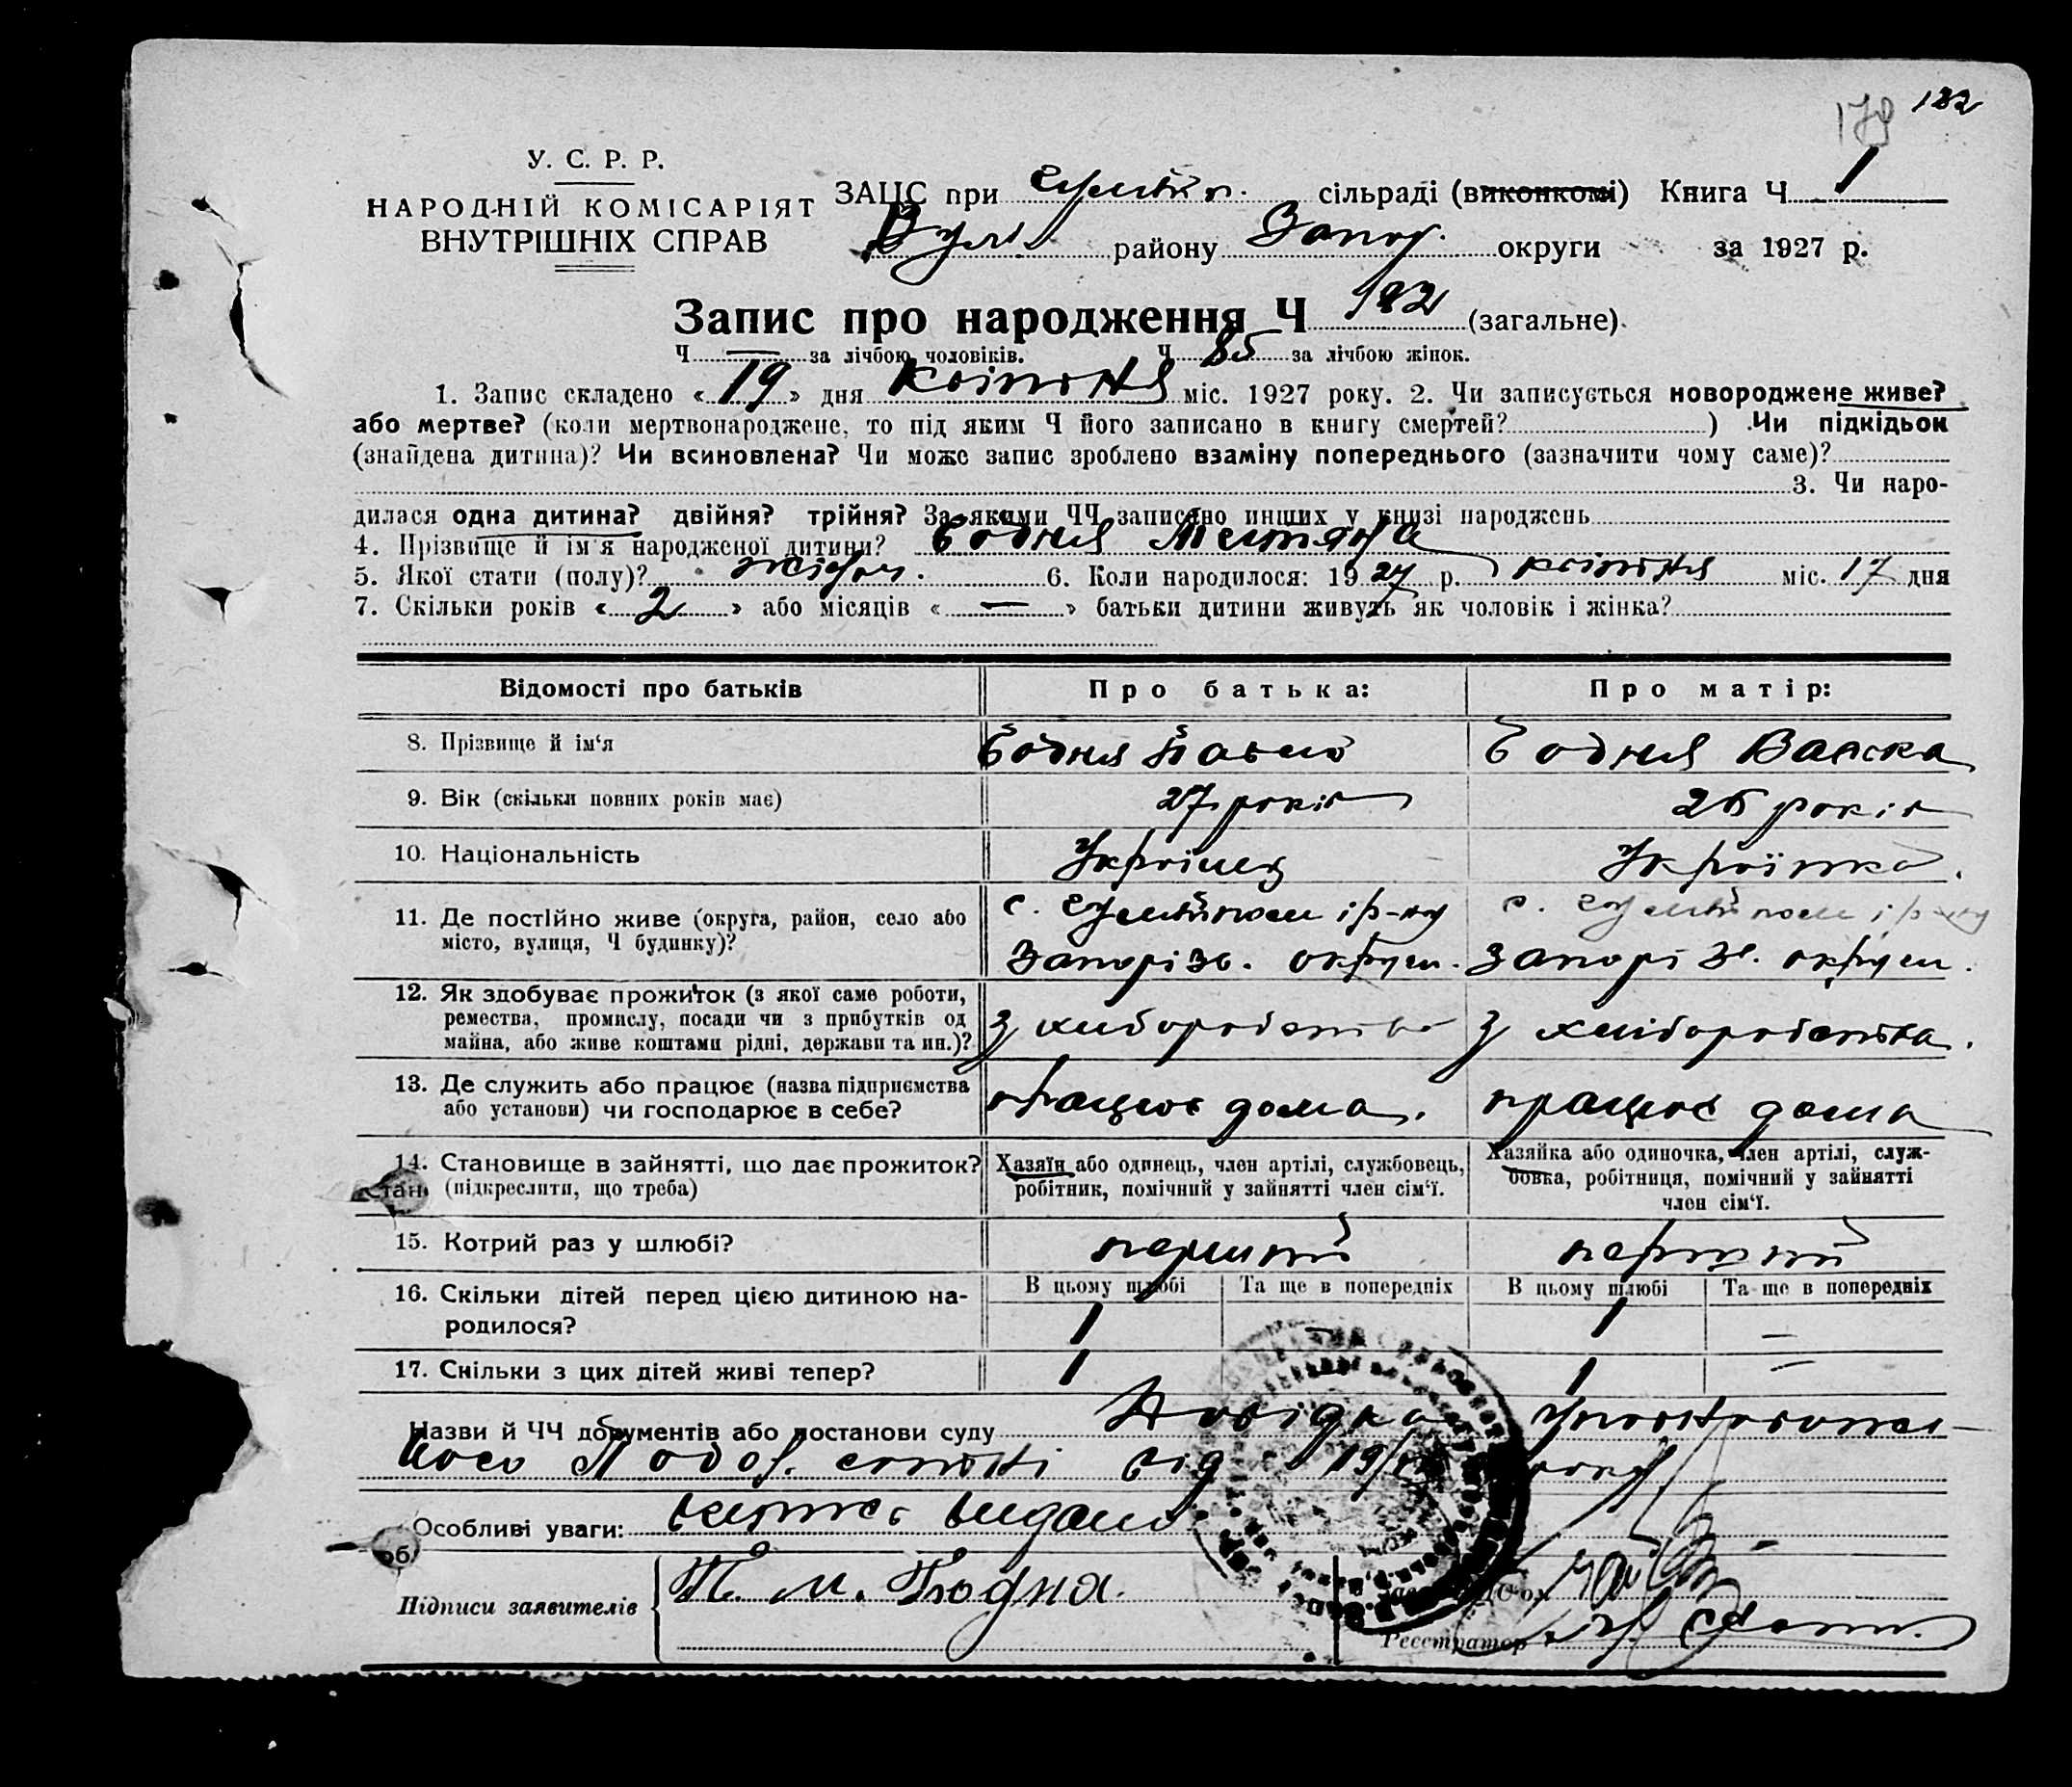 179 182
У. С. Р. Р.
НАРОДНІЙ КОМІСАРІЯТ
ВНУТРІШНІХ СПРАВ
ЗАЦС при сільраді (виконкомі) Книга Ч 1
району Запор. округи за 1927 р.
Запис про народження Ч 182 (загальне).
Ч — за лічбою чоловіків. Ч 85 за лічбою жінок.
1. Запис складено « 19 » дня квітня міс. 1927 року. 2. Чи записується новороджене живе?
або мертве? (коли мертвонароджене, то під яким Ч його записано в книгу смертей? ) Чи підкідьок
(знайдена дитина)? Чи всиновлена? Чи може запис зроблено взаміну попереднього (зазначити чому саме)?
3. Чи наро-
дилася одна дитина? двійня? трійня? За якими ЧЧ записано инших у книзі народжень
4. Прізвище й ім'я народженої дитини? Бодня
5. Якої стати (полу)? жіноч. 6. Коли народилося: 1927 р. квітня міс. 17 дня
7. Скільки років « 2 » або місяців « — » батьки дитини живуть як чоловік і жінка?
Відомості про батьків Про батька: Про матір:
8. Прізвище й ім'я Бодня Павло Бодня Васка
9. Вік (скільки повних років має) 27 років 26 років
10. Національність Українец Українка.
11. Де постійно живе (округа, район, село або
місто, вулиця, Ч будинку)?
с. і р-ну с. і р-ну
Запоріз. округи. Запоріз. округи.
12. Як здобуває прожиток (з якої саме роботи,
ремества, промислу, посади чи з прибутків од
майна, або живе коштами рідні, держави та ин.)?
З хліборобства З хліборобства.
13. Де служить або працює (назва підприємства
або установи) чи господарює в себе?
працює дома. працює дома
14. Становище в зайнятті, що дає прожиток?
(підкреслити, що треба)
Хазяїн або одинець, член артілі, службовець,
робітник, помічний у зайнятті член сім'ї.
Хазяйка або одиночка, член артілі, служ-
бовка, робітниця, помічний у зайнятті
член сім'ї.
15. Котрий раз у шлюбі? перший перший
В цьому шлюбі Та ще в попередніх В цьому шлюбі Та ще в попередніх
16. Скільки дітей перед цією дитиною на-
родилося?
1 — 1 —
17. Скільки з цих дітей живі тепер? 1 1 —
Назви й ЧЧ документів або постанови суду Довідка уповноважен-
ного сотні від 19/
Особливі уваги: витяг видано
Підписи заявителів П. М. Бодня.
Реєстратор